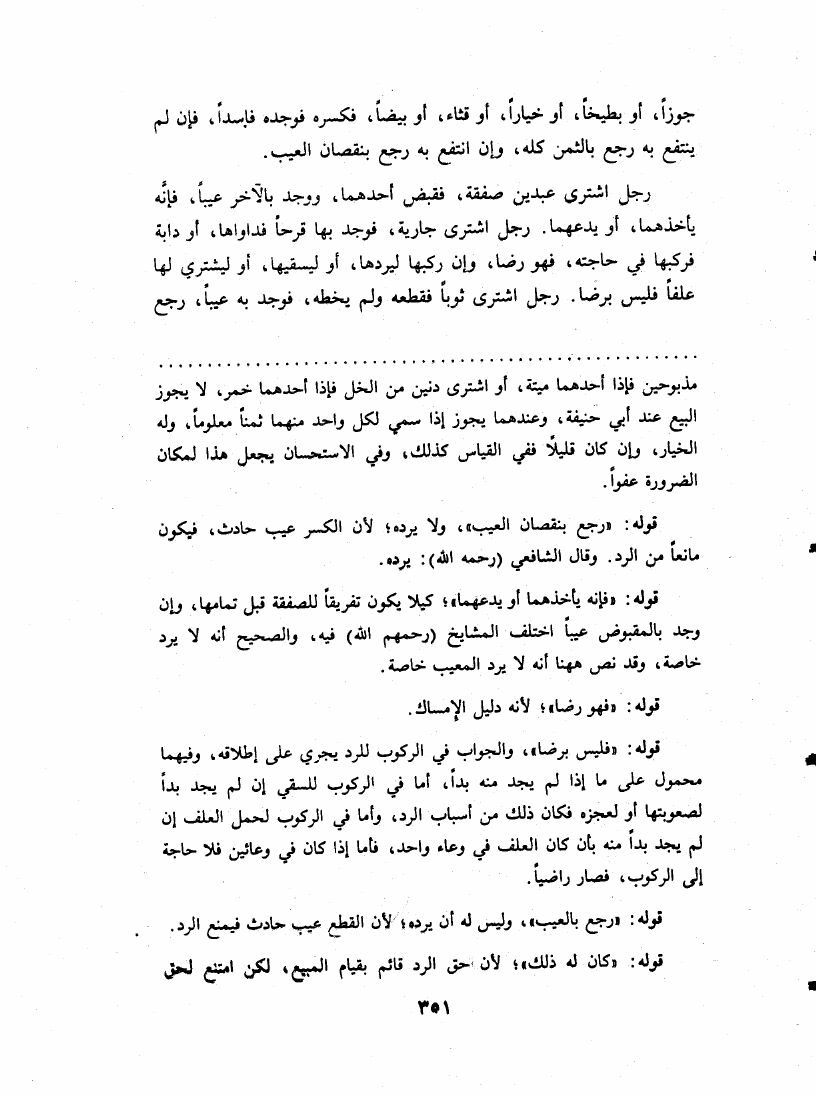 جوزاً، أو بطيخاً، أو خياراً، أو قثاء، أو بيضاً، فكسره فوجده فاسداً، فإن لم
ينتفع به رجع بالثمن كله، وإن انتفع به رجع بنقصان العيب.
رجل اشترى عبدين صفقة، فقبض أحدهما، ووجد بالآخر عيباً، فإنَّه
يأخذهما، أو يدعهما. رجل اشترى جارية، فوجد بها قرحاً فداواها، أو دابة
فركبها في حاجته، فهو رضا، وإن ركبها ليردها، أو ليسقيها، أو ليشتري لها
علفاً فليس برضا. رجل اشترى ثوباً فقطعه ولم يخطه، فوجد به عيباً، رجع
مذبوحين فإذا أحدهما ميتة، أو اشترى دنين من الخل فإذا أحدهما خمر، لا يجوز
البيع عند أبي حنيفة، وعندهما يجوز إذا سمي لكل واحد منهما ثمناً معلوماً، وله
الخيار، وإن كان قليلاً ففي القياس كذلك، وفي الاستحسان يجعل هذا لمكان
الضرورة عفواً.
قوله: «رجع بنقصان العيب»، ولا يرده؛ لأن الكسر عيب حادث، فيكون
مانعاً من الرد. وقال الشافعي (رحمه الله): يرده.
قوله: «فإنه يأخذهما أو يدعهما»؛ كيلا يكون تفريقاً للصفقة قبل تمامها، وإن
وجد بالمقبوض عيباً اختلف المشايخ (رحمهم الله) فيه، والصحيح أنه لا يرد
خاصة، وقد نص ههنا أنه لا يرد المعيب خاصة.
قوله: «فهو رضا»؛ لأنه دليل الإمساك.
قوله: «فليس برضا»، والجواب في الركوب للرد يجري على إطلاقه، وفيهما
محمول على ما إذا لم يجد منه بداً، أما في الركوب للسقي إن لم يجد بداً
لصعوبتها أو لعجزه فكان ذلك من أسباب الرد، وأما في الركوب لحمل العلف إن
لم يجد بداً منه بأن كان العلف في وعاء واحد، فأما إذا كان في وعائين فلا حاجة
إلى الركوب، فصار راضياً.
قوله: «رجع بالعيب»، وليس له أن يرده؛ لأن القطع عيب حادث فيمنع الرد.
قوله: «كان له ذلك»؛ لأن حق الرد قائم بقيام المبيع، لكن امتنع لحق
٣٥١